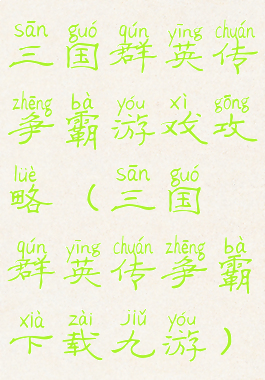 sān guó qún yīng chuán
三国群英传
zhēng bà yóu xì gōng
争霸游戏攻
lüè sān guó
略（三国
qún yīng chuán zhēng bà
群英传争霸
xià zài jiǔ yóu
下载九游）